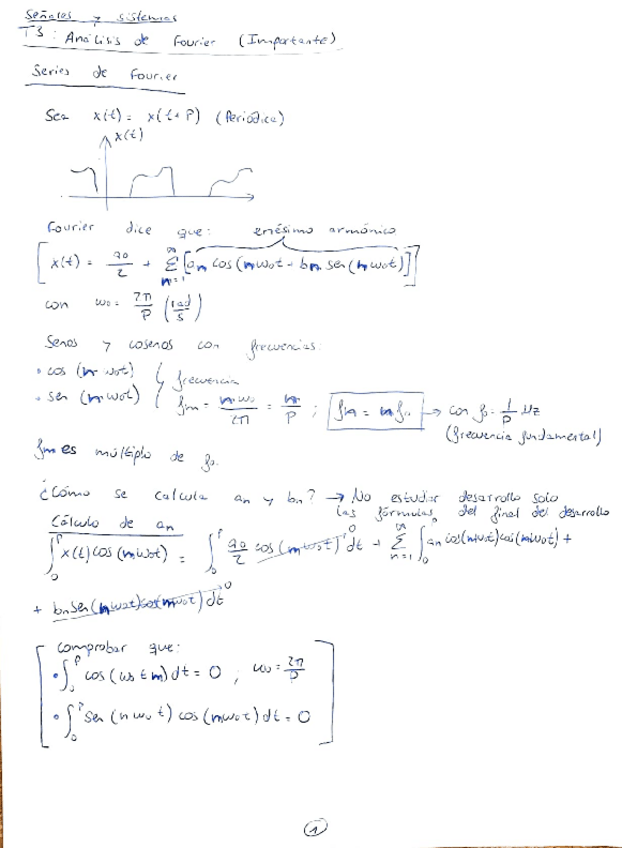 Señales y sistemas
T3: Análisis de Fourier (Importante)
Series de Fourier
Sea x(t) = x(t+P) (Periódica)
x(t)
Fourier dice que: enésimo armónico
[x(t) = a0/2 + ∞ Σ n=1 [an cos(nω0t + bn sen(nω0t)]]
con ω0 = 2π/P (rad/s)
Senos y cosenos con frecuencias:
• cos (n ω0t)
• sen (n ω0t) } frecuencia fn = nω0/2π = n/P ; fn = n f0 → con f0 = 1/P Hz
(frecuencia fundamental)
fn es múltiplo de f0.
¿Cómo se calcula an y bn? → No estudiar desarrollo solo
las fórmulas del final del desarrollo
Cálculo de an
∫0^P x(t) cos(mω0t) = ∫0^P a0/2 cos(mω0t) dt^0 + ∞ Σ n=1 ∫0^P an cos(nω0t) cos(mω0t) +
+ bn sen(nω0t) cos(mω0t) dt^0
comprobar que:
• ∫0^P cos(ω0 t m) dt = 0 ; ω0 = 2π/P
• ∫0^P sen (n ω0 t) cos (mω0t) dt = 0
1